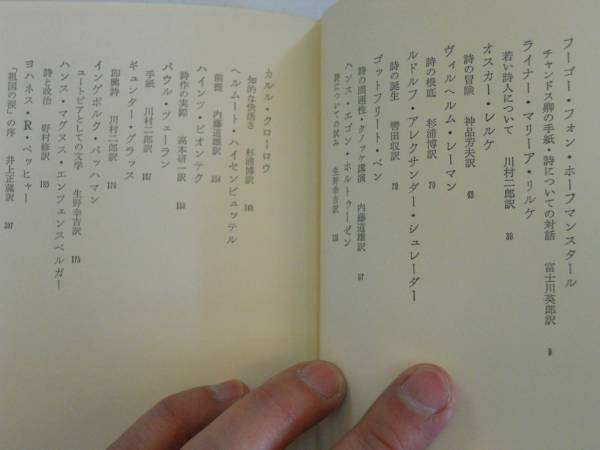 フーゴー・フォン・ホーフマンスタール
チャンドス卿の手紙・詩についての対話 富士川英郎訳 9
ライナー・マリーア・リルケ
若い詩人について 川村二郎訳 38
オスカー・レルケ
詩の冒険 神品芳夫訳 63
ヴィルヘルム・レーマン
詩の根底 杉浦博訳 70
ルドルフ・アレクサンダー・シュレーダー
詩の誕生 轡田収訳 79
ゴットフリート・ベン
詩の問題性・クノッケ講演 内藤道雄訳 97
ハンス・エゴン・ホルトゥーゼン
詩についての試み 生野幸吉訳
カルル・クローロウ
知的な快活さ 杉浦博訳 146
ヘルムート・ハイセンビュッテル
前提 内藤道雄訳 154
ハインツ・ピオンテク
詩作の実際 高本研一訳 159
パウル・ツェーラン
手紙 川村二郎訳 167
ギュンター・グラス
即興詩 川村二郎訳 170
インゲボルク・バッハマン
ユートピアとしての文学 生野幸吉訳 175
ハンス・マグヌス・エンツェンスベルガー
詩と政治 野村修訳 185
ヨハネス・R・ベッヒャー
「祖国の涙」の序 井上正蔵訳 207